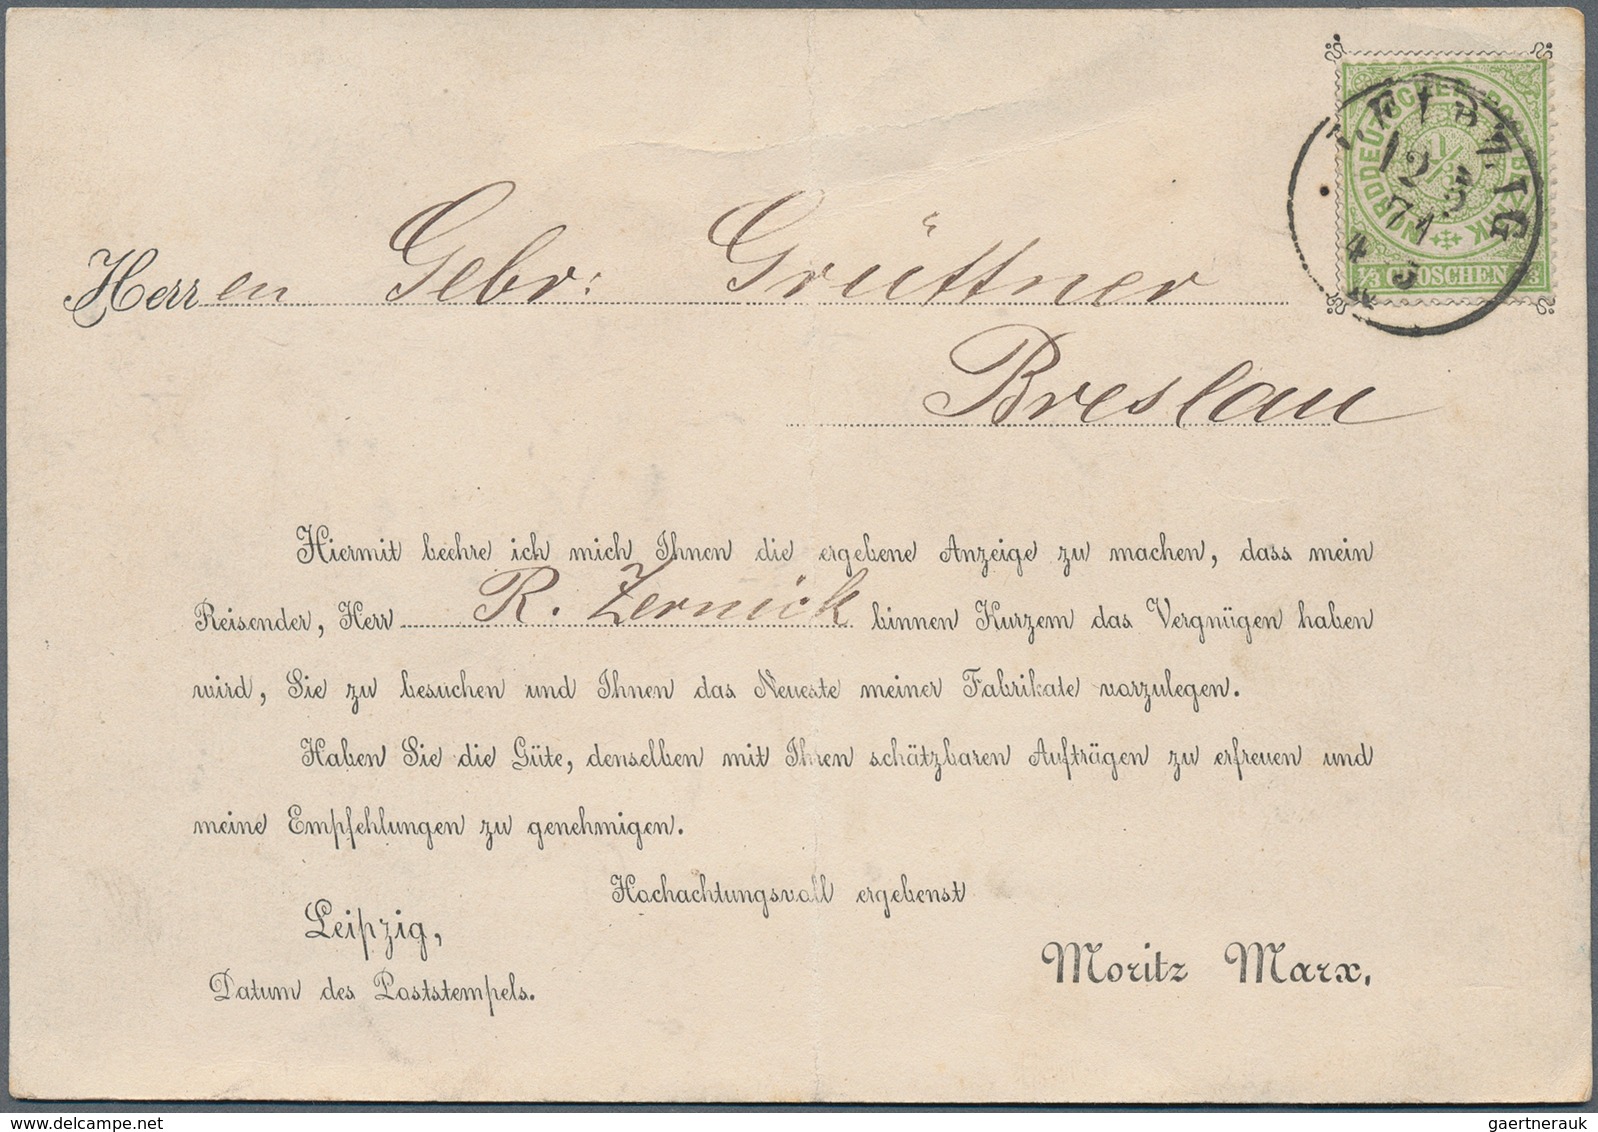 NORDDEUTSCHER POSTBEZIRK
1/3
1/3 GROSCHEN 1/3
LEIPZIG
12 3
71
4-5
N
Herren Gebr: Grüttner
Breslau
Hiermit beehre ich mich Ihnen die ergebene Anzeige zu machen, dass mein
Reisender, Herr R. Zernick binnen Kurzem das Vergnügen haben
wird, Sie zu besuchen und Ihnen das Neueste meiner Fabrikate vorzulegen.
Haben Sie die Güte, denselben mit Ihren schätzbaren Aufträgen zu erfreuen und
meine Empfehlungen zu genehmigen.
Hochachtungsvoll ergebenst
Leipzig,
Moritz Marx.
Datum des Poststempels.
delcampe.net
gaertnerauk